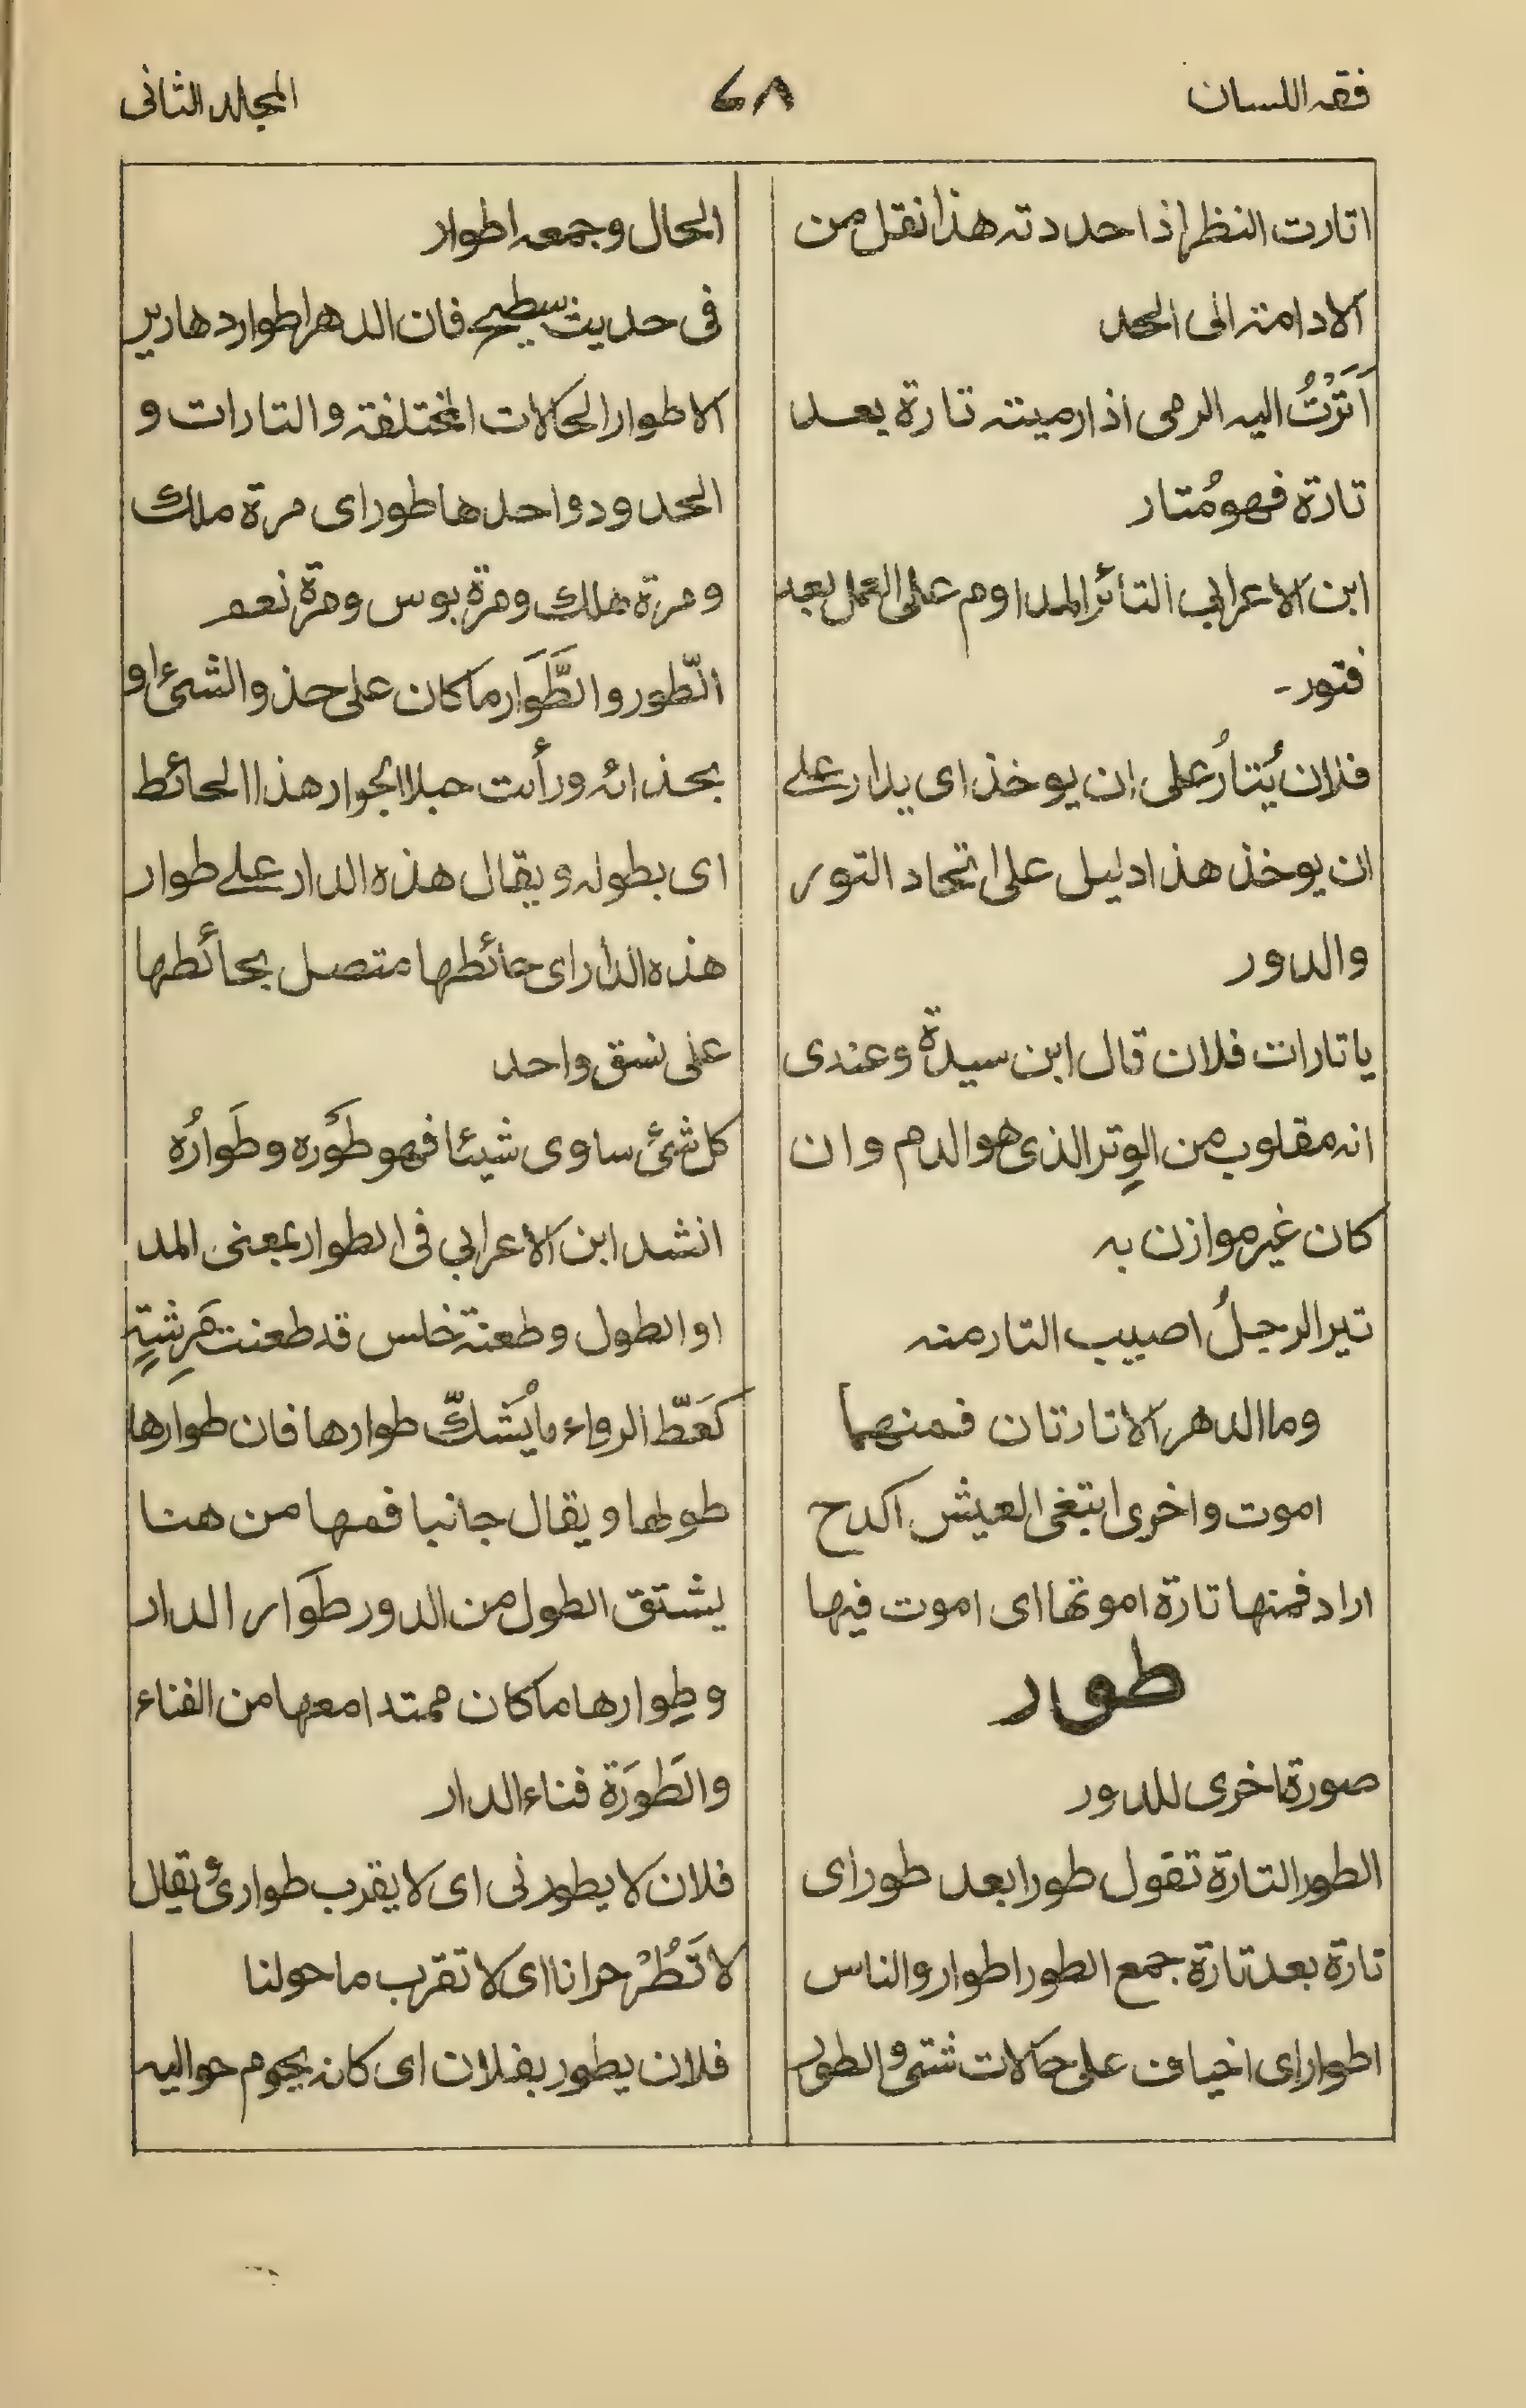 فقه اللسان
٤٨
المجلد الثانی
اتارت النظر اذا حددته هذا نقل من
الادامة الی الحد
اَتَرْتُ الیه الرمی اذا رمیته تارة بعد
تارة فهو مُتار
ابن الاعرابی التائر المداوم علی العمل بعد
فتور۔
فلان یُتارُ علی ان یوخذ ای یدار علے
ان یوخذ هذا دلیل علی اتحاد التور
والدور
یا تارات فلان قال ابن سیدة وعندی
انه مقلوب من الوِتر الذی هو الدم وان
کان غیر موازن به
تیر الرجلُ اصیب التار منه
وما الدهر الا تارتان فمنهما
اموت واخری ابتغی العیش اکدح
اراد فمنها تارة اموتها ای اموت فیها
طوار
صورة اخری للدور
الطور التارة تقول طورا بعد طور ای
تارة بعد تارة جمع الطور اطوار والناس
اطوار ای اخیاف علی حالات شتی و الطور
الحال وجمعه اطوار
فی حدیث سطیح فان الدهر اطوار دهاریر
الاطوار الحالات المختلفة والتارات و
الحدود واحدها طور ای مرة ملك
ومرة هلك ومرة بوس ومرة نعم
الطّور والطَّوَار ما کان علی حذو الشئ او
بحذائه ورأیت حبلا الجوار هذا الحائط
ای بطوله ویقال هذه الدار علے طوار
هذه الدار ای حائطها متصل بحائطها
علی نسق واحد
کل شئ ساوی شیئا فهو طَوره وطَوارُه
انشد ابن الاعرابی فی الطوار بمعنی المد
او الطول وطعنة خلس قد طعنت مَرِشَّةٍ
کعَطّ الرواء ما یُشكّ طوارها فان طوارها
طولها ویقال جانبا فمها من هنا
یشتق الطول من الدور طَوار الدار
وطِوارها ما کان ممتدا معها من الفناء
والطَورَة فناء الدار
فلان لا یطورنی ای لا یقرب طواری ویقال
لا تَطُرْ حرانا ای لا تقرب ما حولنا
فلان یطور بفلان ای کانه یحوم حوالیه